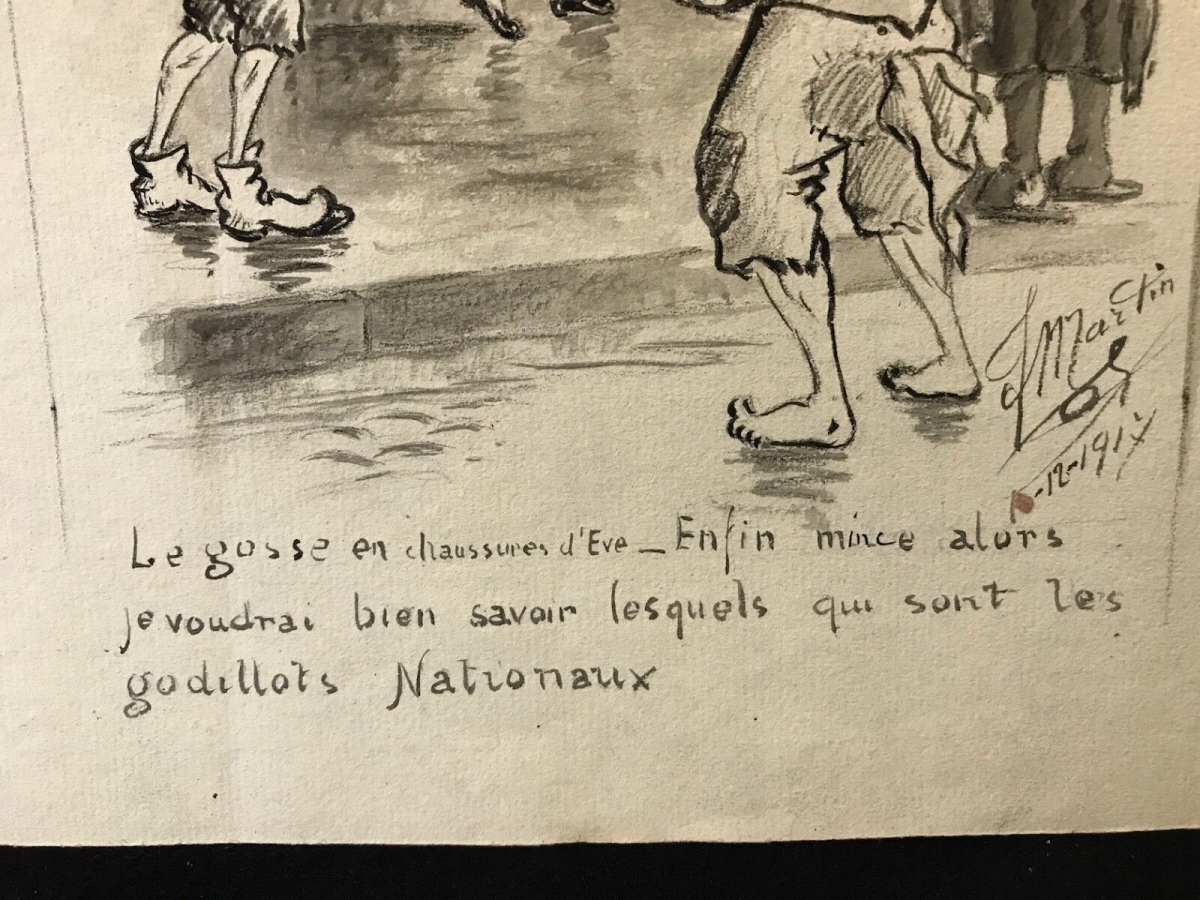 J Martin
-12-1917
Le gosse en chaussures d'Eve _ Enfin mince alors
je voudrai bien savoir lesquels qui sont les
godillots Nationaux